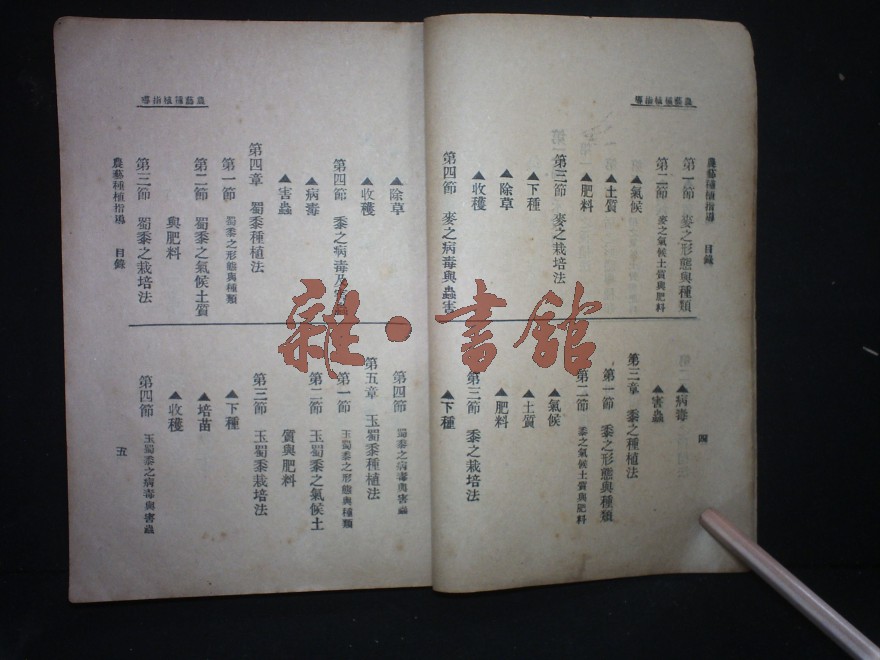 農藝種植指導
農藝種植指導 目錄
第一節 麥之形態與種類
第二節 麥之氣候土質與肥料
▲氣候
▲土質
▲肥料
第三節 麥之栽培法
▲下種
▲除草
▲收穫
第四節 麥之病毒與蟲害
▲病毒
▲害蟲
第三章 黍之種植法
第一節 黍之形態與種類
第二節 黍之氣候土質與肥料
▲氣候
▲土質
▲肥料
第三節 黍之栽培法
▲下種
四
農藝種植指導
▲除草
▲收穫
第四節 黍之病毒及
▲病毒
▲害蟲
第四章 蜀黍種植法
第一節 蜀黍之形態與種類
第二節 蜀黍之氣候土質
與肥料
第三節 蜀黍之栽培法
第四節 蜀黍之病毒與害蟲
第五章 玉蜀黍種植法
第一節 玉蜀黍之形態與種類
第二節 玉蜀黍之氣候土
質與肥料
第三節 玉蜀黍栽培法
▲下種
▲培苗
▲收穫
第四節 玉蜀黍之病毒與害蟲
農藝種植指導 目錄
五
雜·書館